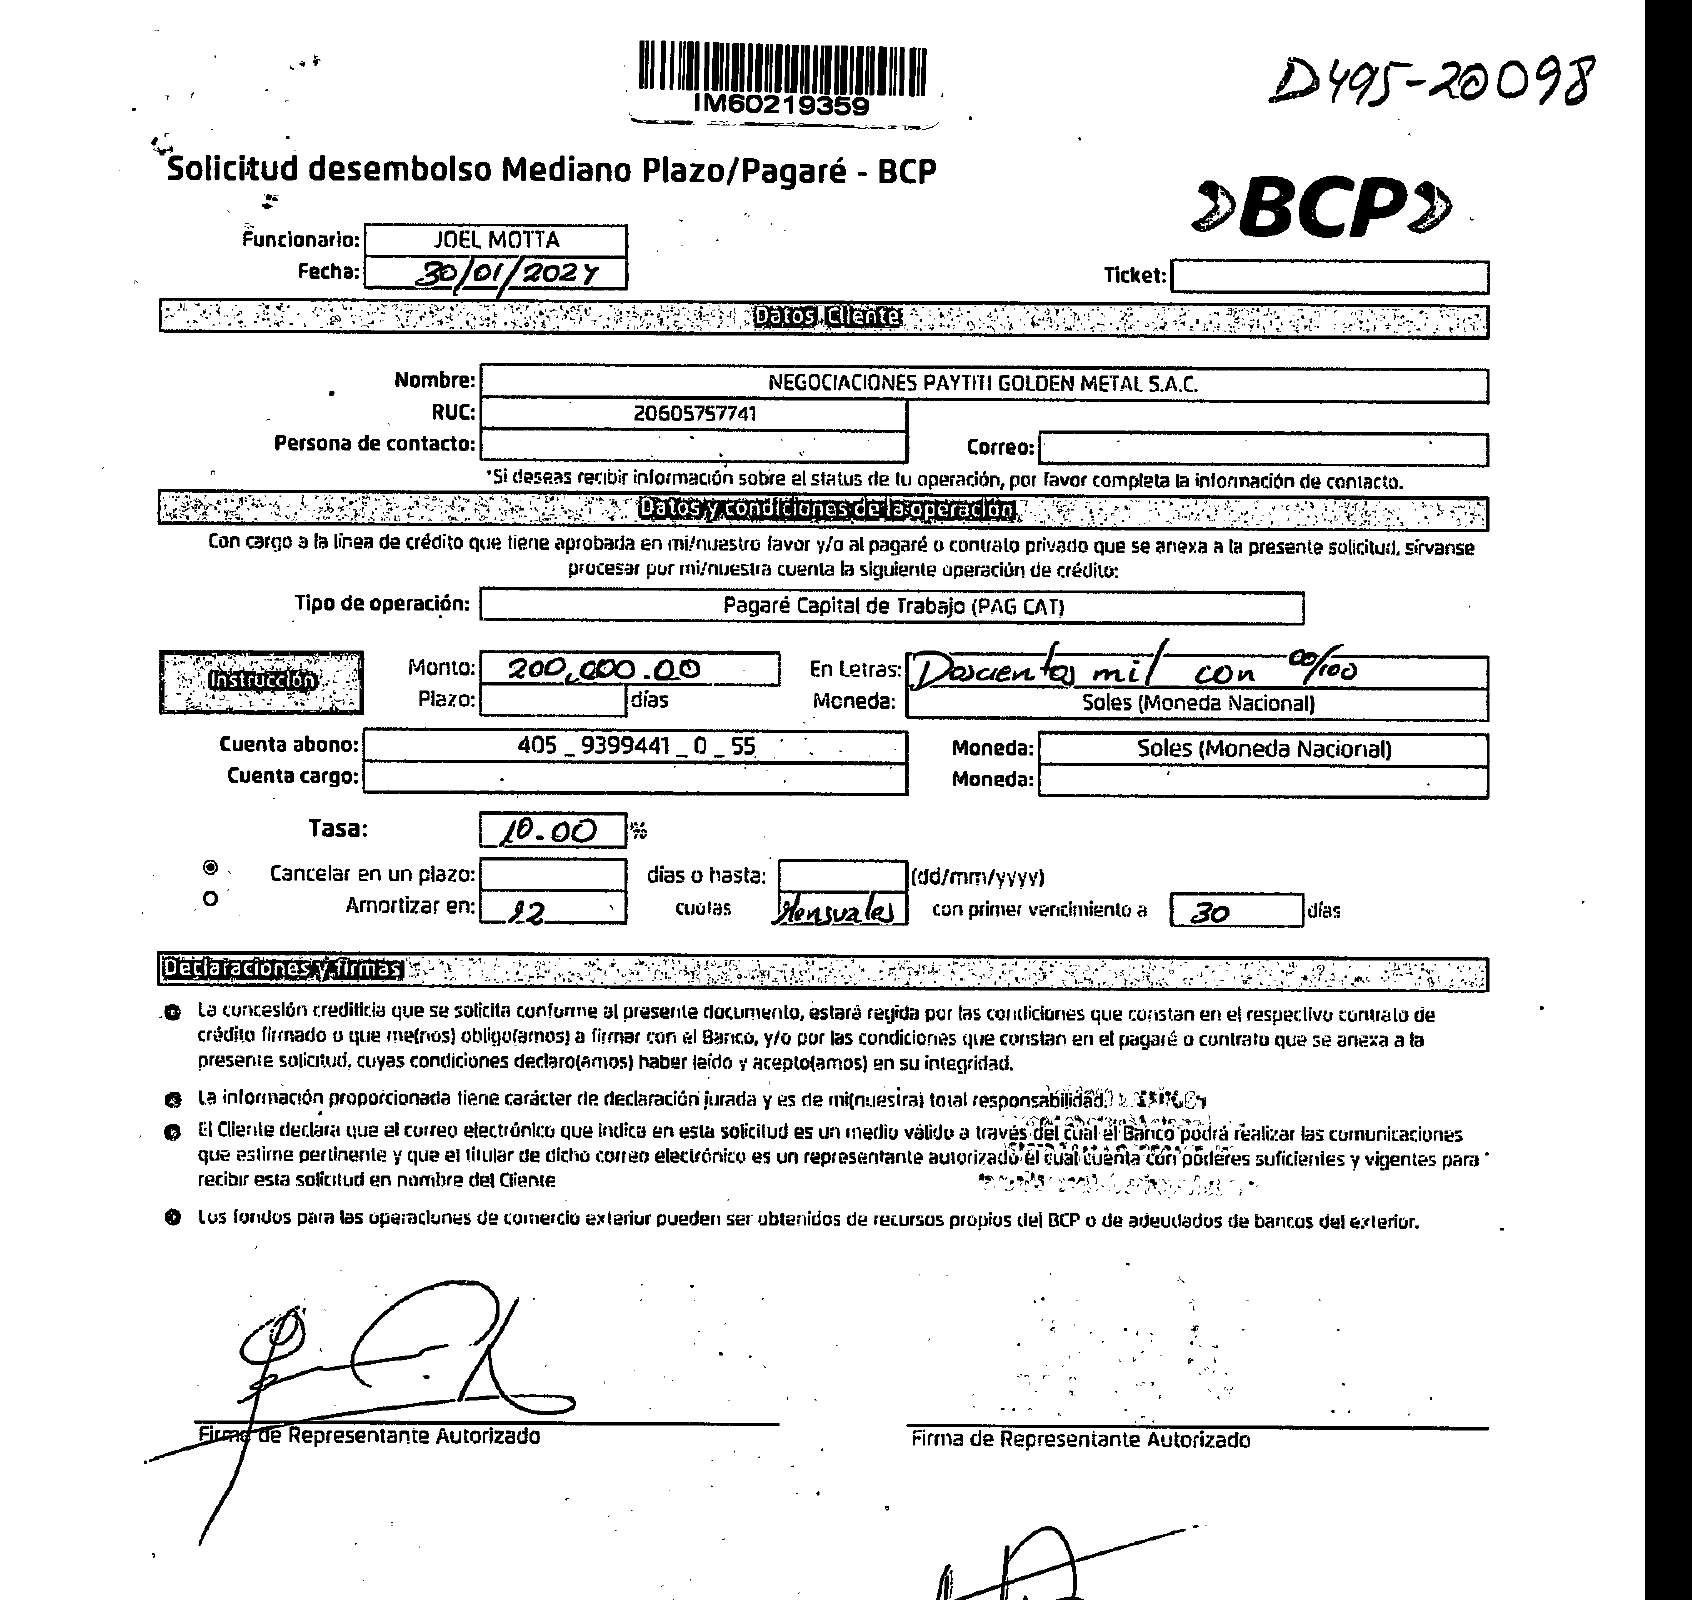 IM60219359
D495-20098
Solicitud desembolso Mediano Plazo/Pagaré - BCP
»BCP»
Funcionario: JOEL MOTTA
Fecha: 30/01/2024
Ticket:
Datos Cliente
Nombre: NEGOCIACIONES PAYTITI GOLDEN METAL S.A.C.
RUC: 20605757741
Persona de contacto: Correo:
*Si deseas recibir información sobre el status de tu operación, por favor completa la información de contacto.
Datos y condiciones de la operación
Con cargo a la línea de crédito que tiene aprobada en mi/nuestro favor y/o al pagaré o contrato privado que se anexa a la presente solicitud, sírvanse
procesar por mi/nuestra cuenta la siguiente operación de crédito:
Tipo de operación: Pagaré Capital de Trabajo (PAG CAT)
Instrucción
Monto: 200,000.00 En Letras: Doscientos mil con 00/100
Plazo: días Moneda: Soles (Moneda Nacional)
Cuenta abono: 405 _ 9399441 _ 0 _ 55 Moneda: Soles (Moneda Nacional)
Cuenta cargo: Moneda:
Tasa: 10.00 %
Cancelar en un plazo: días o hasta: (dd/mm/yyyy)
Amortizar en: 12 cuotas Mensuales con primer vencimiento a 30 días
Declaraciones y firmas
La concesión crediticia que se solicita conforme al presente documento, estará regida por las condiciones que constan en el respectivo contrato de
crédito firmado o que me(nos) obligo(amos) a firmar con el Banco, y/o por las condiciones que constan en el pagaré o contrato que se anexa a la
presente solicitud, cuyas condiciones declaro(amos) haber leído y acepto(amos) en su integridad.
La información proporcionada tiene carácter de declaración jurada y es de mi(nuestra) total responsabilidad.
El Cliente declara que el correo electrónico que indica en esta solicitud es un medio válido a través del cual el Banco podrá realizar las comunicaciones
que estime pertinente y que el titular de dicho correo electrónico es un representante autorizado el cual cuenta con poderes suficientes y vigentes para
recibir esta solicitud en nombre del Cliente
Los fondos para las operaciones de comercio exterior pueden ser obtenidos de recursos propios del BCP o de adeudados de bancos del exterior.
Firma de Representante Autorizado
Firma de Representante Autorizado